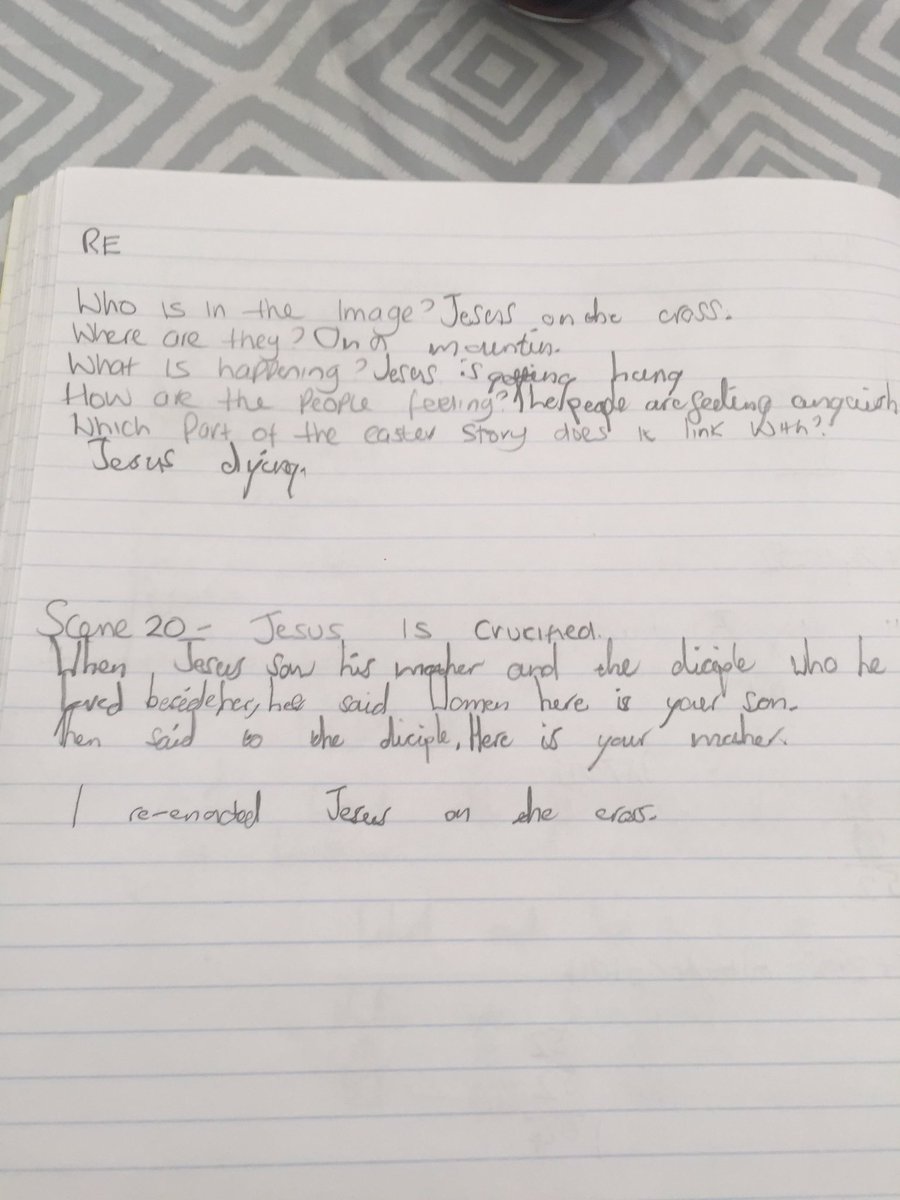 RE
Who is in the Image? Jesus on the cross.
Where are they? On a mountin.
What is happening? Jesus is getting hung
How are the people feeling? The people are feeling anguish
Which Part of the easter story does it link with?
Jesus dying.
Scene 20 - Jesus is crucified.
When Jesus saw his mother and the diciple who he
loved becide her, he said Women here is your son.
Then said to the diciple, Here is your mother.
I re-enacted Jesus on the cross.